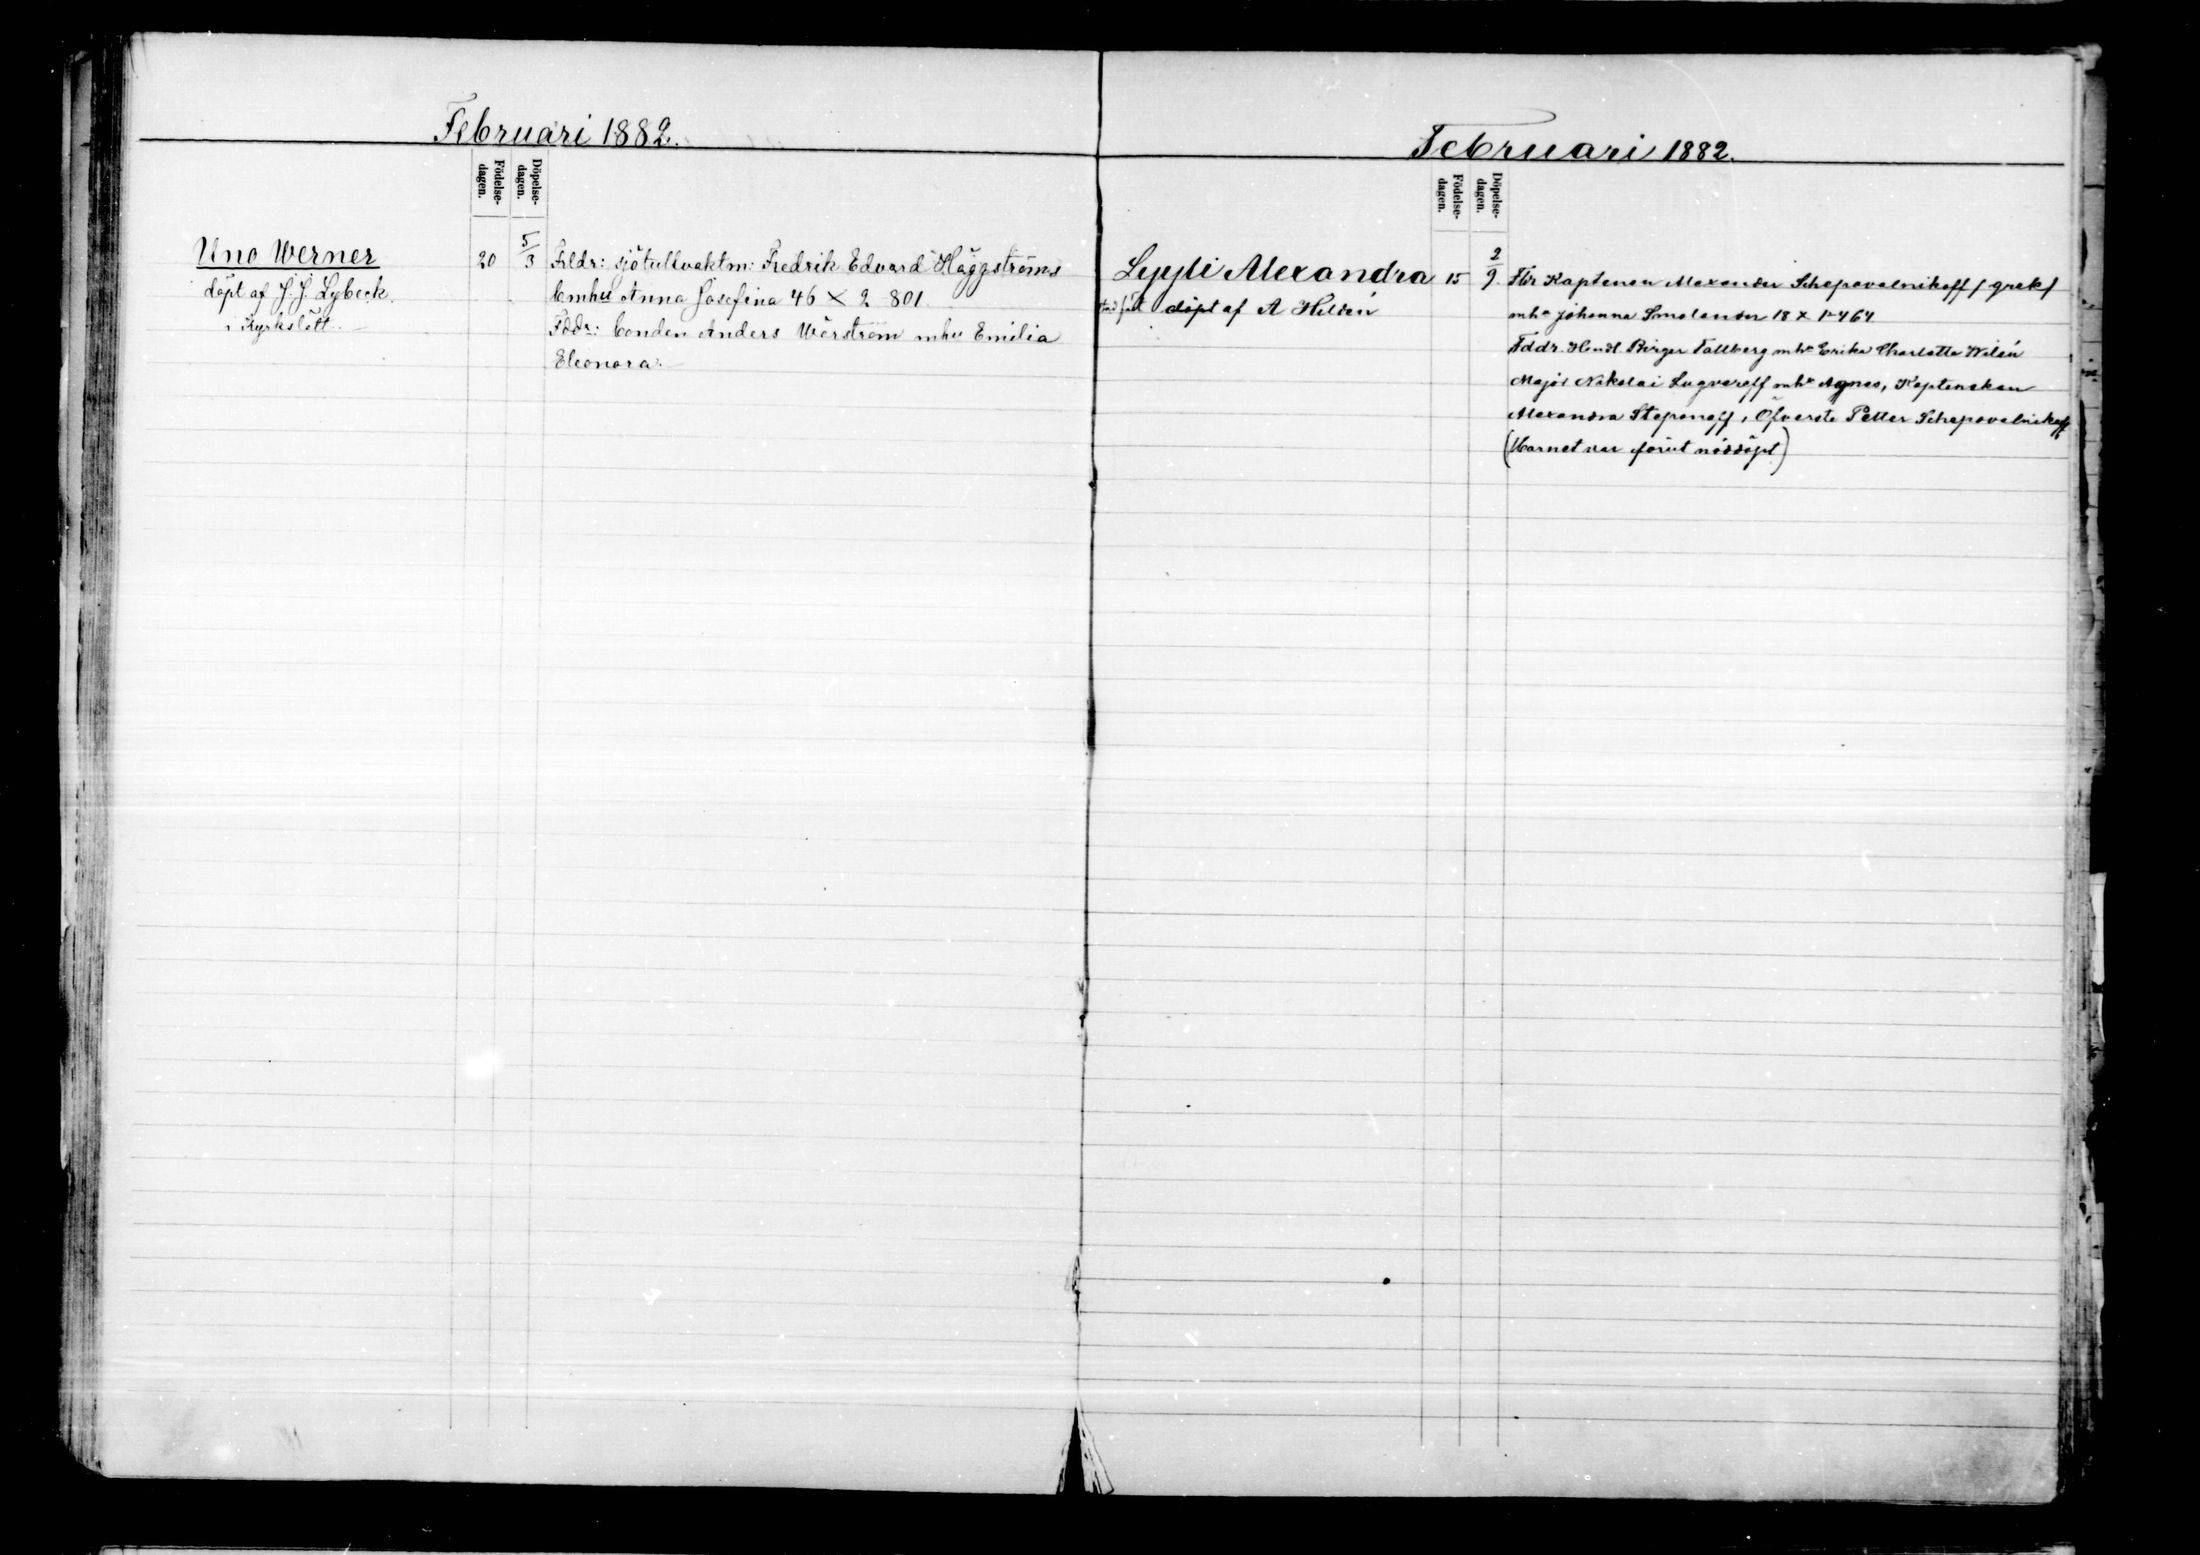 Februari 1882.
Födelse-
dagen.
Döpelse-
dagen.
Uno Werner
döpt af J. J. Lybeck
i Kyrkslätt.
20
5/3
Frldr: sjötullvaktm: Fredrik Edvard Häggströms
Cmhu Anna Josefina 46 × 2 801.
Fddr: bonden Anders Wörström mhu Emilia
Eleonora.
Februari 1882.
Födelse-
dagen.
Döpelse-
dagen.
Lyyli Alexandra
döpt af A Hildén
15
2/9.
Flr Kaptenen Alexander Schepovalnikoff / grek /
mhu Johanna Smolander 18 × 1 464
Fddr. Handl. Birger Fallberg mhu Erika Charlotta Wilén
Major Nikolai Lugvareff mhu Agnes, Kaptenskan
Alexandra Stepanoff, Öfverste Petter Schepovalnikoff
(Barnet var förut nöddöpt)